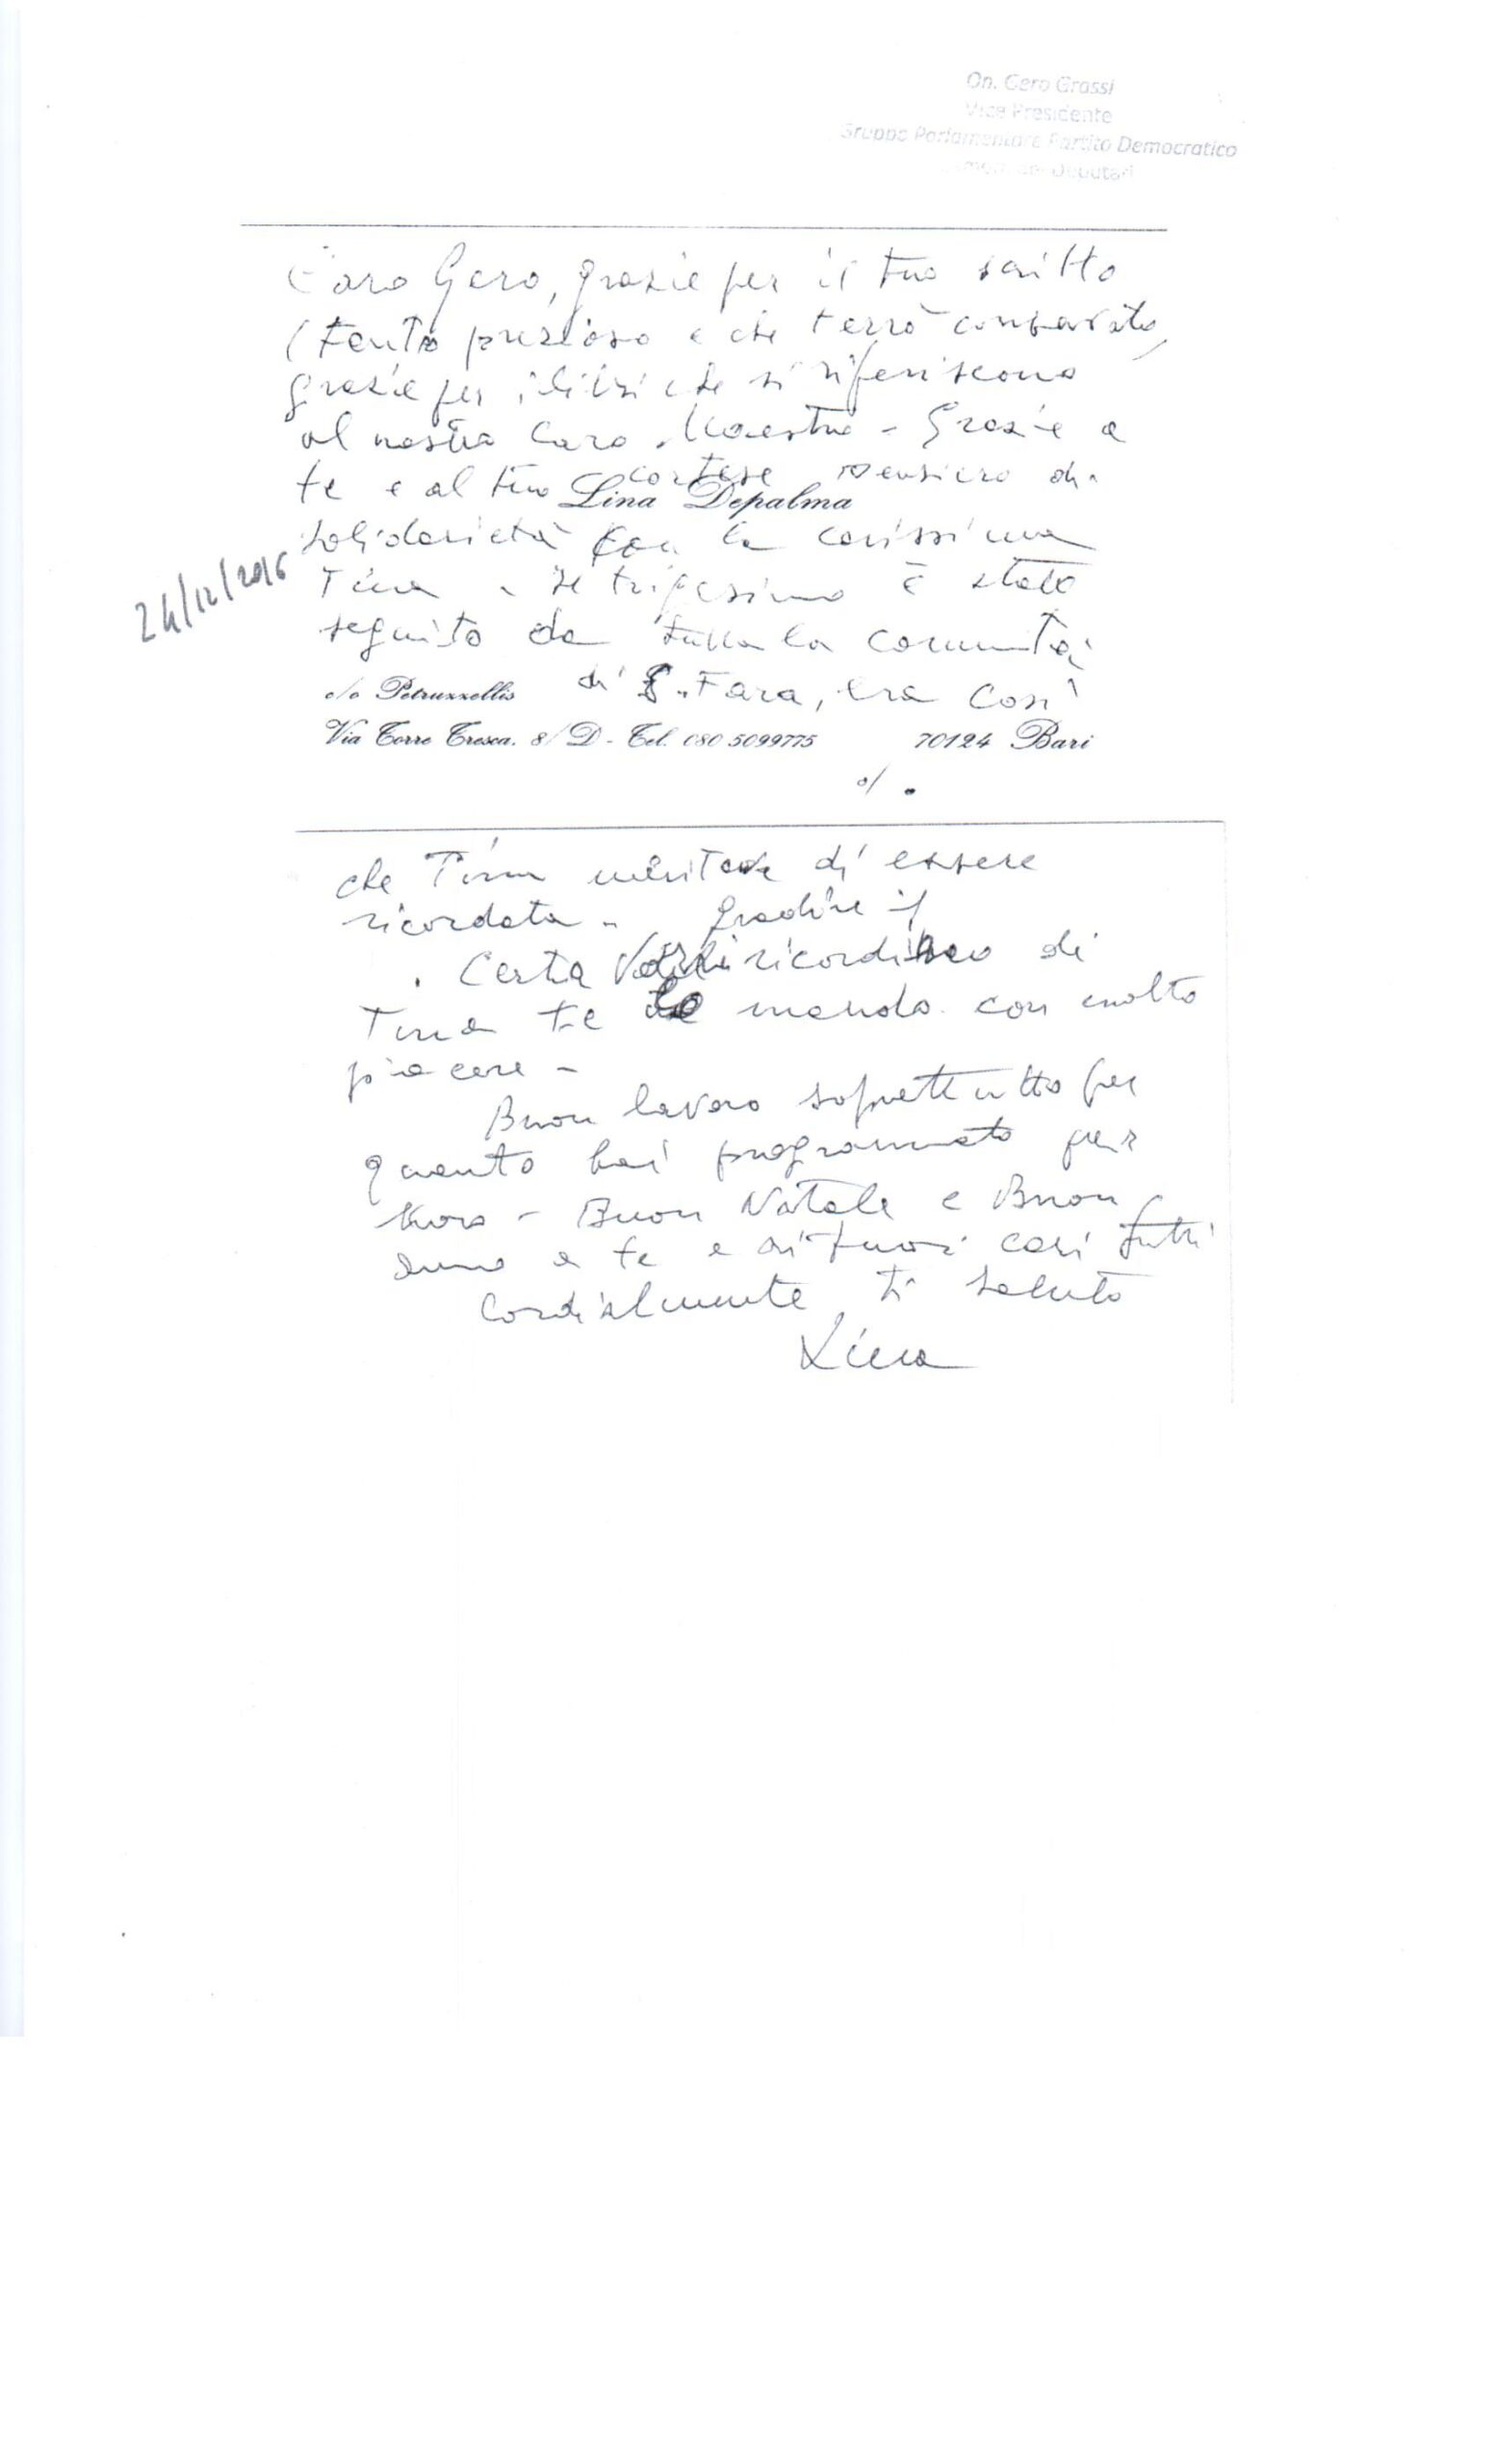 On. Gero Grassi
Vice Presidente
Gruppo Parlamentare Partito Democratico
Deputati
Caro Gero, grazie per il tuo scritto
(tanto prezioso e che terrò conservato,
grazie per i libri che si riferiscono
al nostro Caro Maestro - Grazie a
te e al tuo cortese pensiero di
Lina Depalma
solidarietà con la carissima
24/12/2016
Tina. Il trigesimo è stato
seguito da tutta la comunità
di S. Fara, era così
c/o Petruzzellis
Via Torre Tresca. 8/D - Tel. 080 5099775 70124 Bari
./.
che Tina meritava di essere
ricordata - gradire il
. Certa ricordino di
Tina te lo mando con molto
piacere -
Buon lavoro soprattutto per
quanto hai programmato per
Moro - Buon Natale e Buon
anno a te e ai tuoi cari tutti
Cordialmente ti saluto
Lina